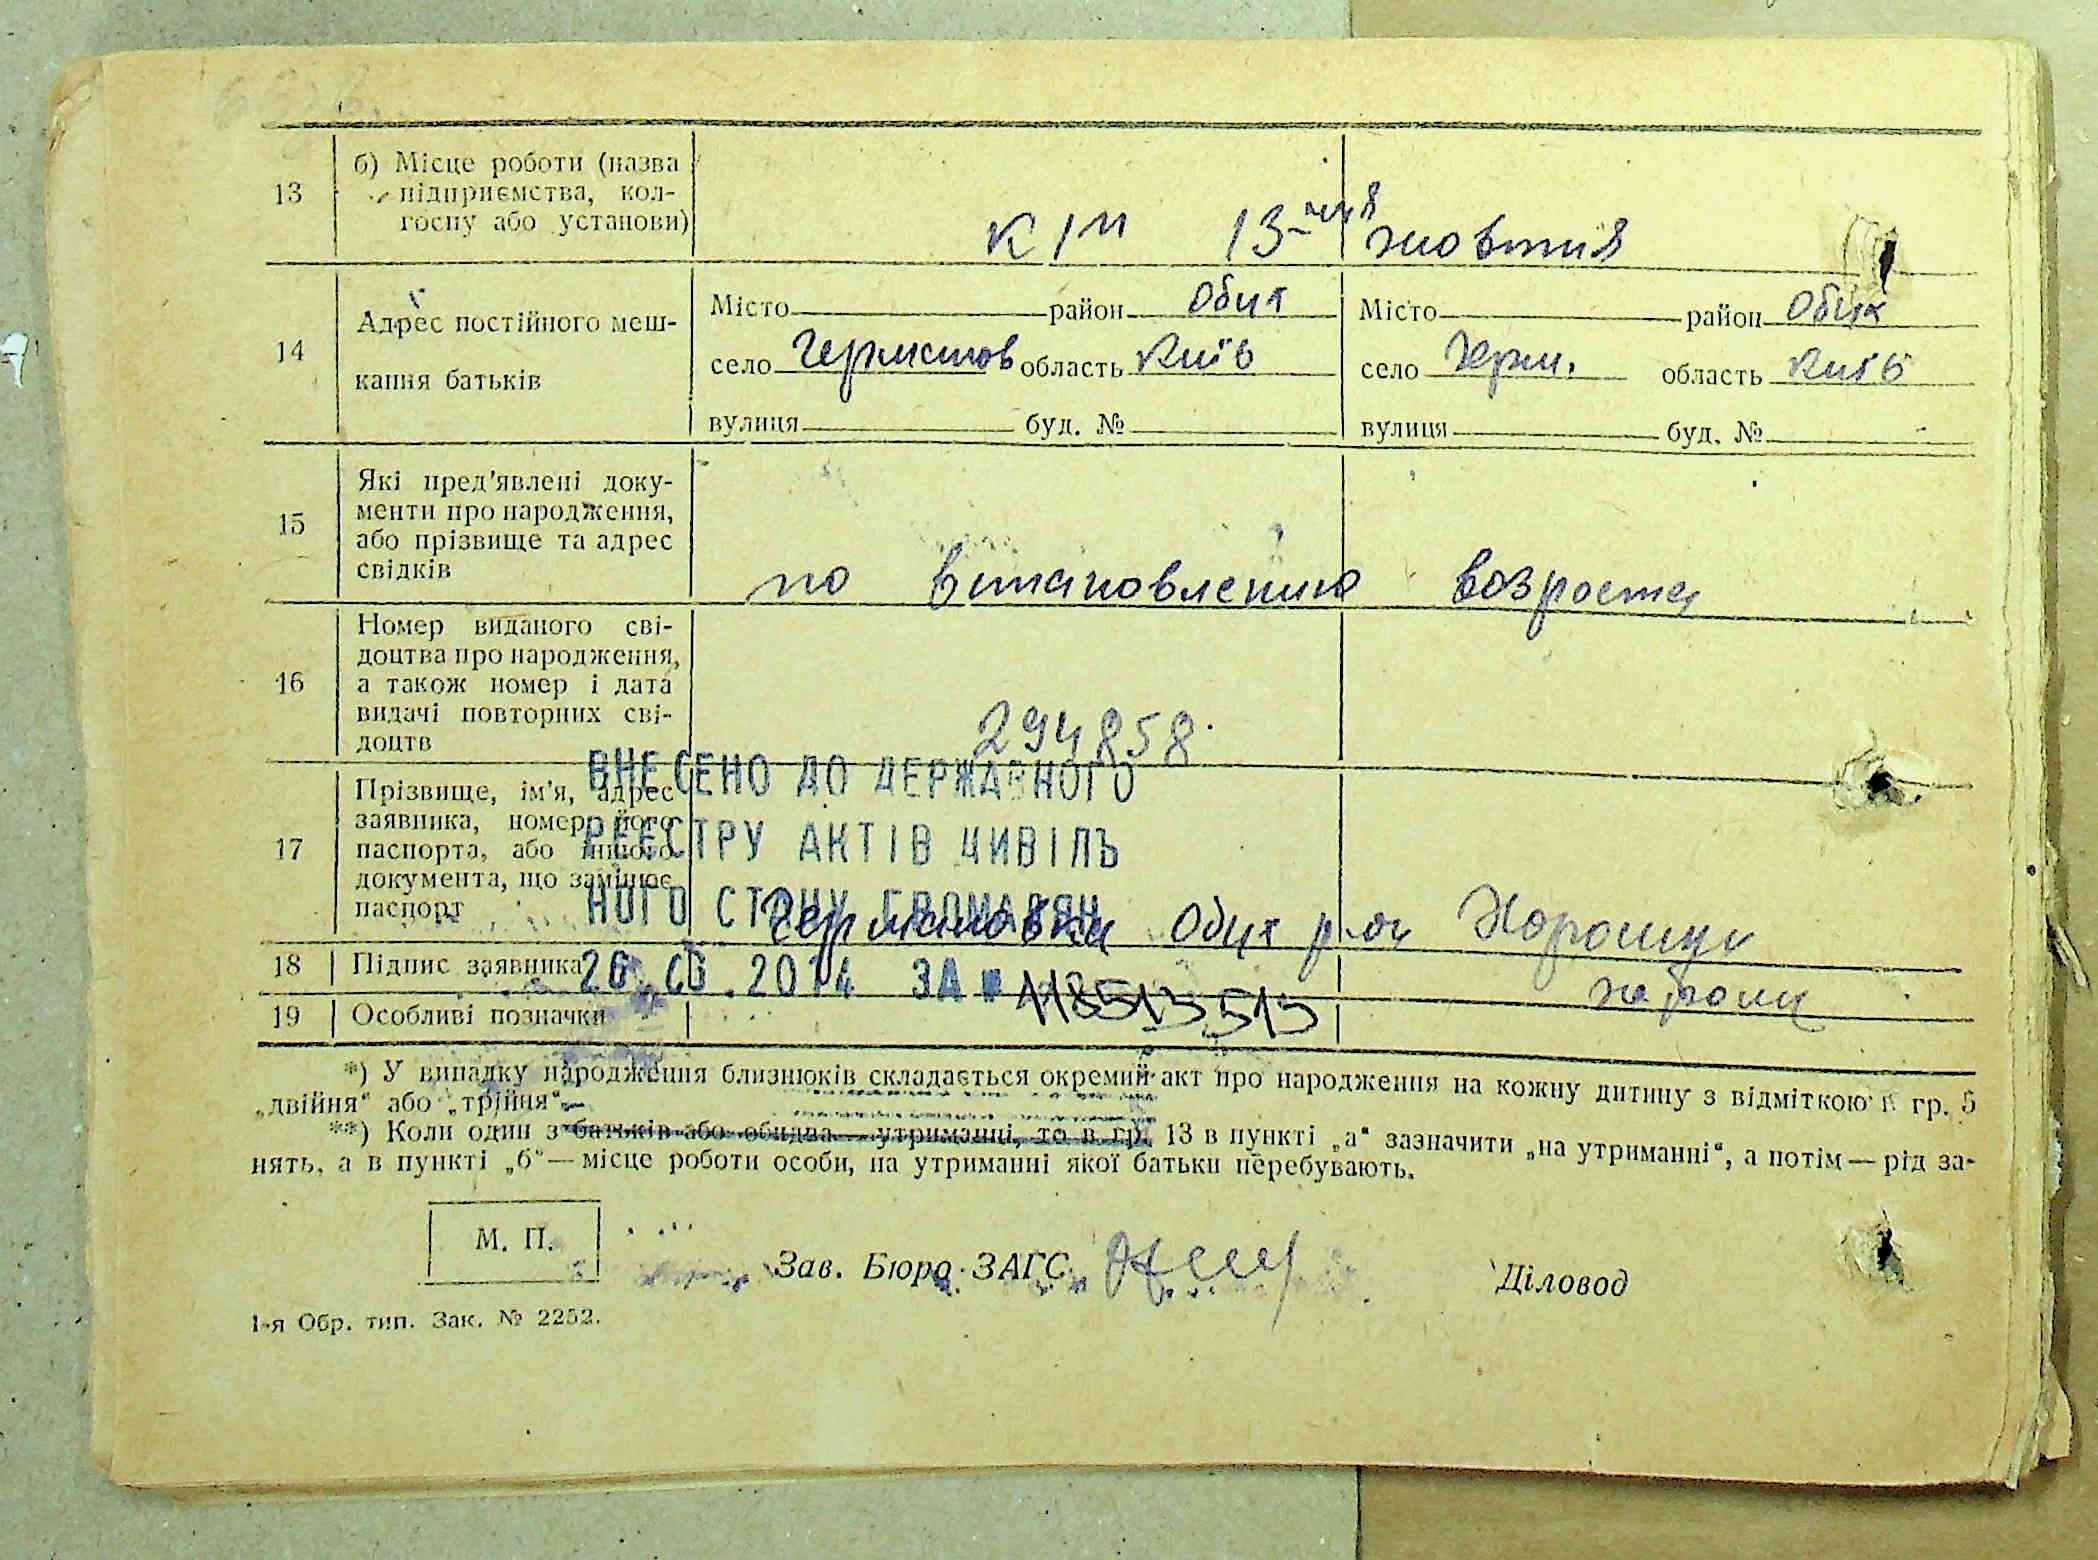 13
б) Місце роботи (назва
підприємства, кол-
госпу або установи)
К/Г 13-тиччя жовтня
14
Адрес постійного меш-
кання батьків
Місто район Обух Місто район Обух
село Германов область Київ село Герм. область Київ
вулиця буд. № вулиця буд. №
15
Які пред'явлені доку-
менти про народження,
або прізвище та адрес
свідків
по встановлению возроста
16
Номер виданого сві-
доцтва про народження,
а також номер і дата
видачі повторних сві-
доцтв
294858.
17
Прізвище, ім'я, адрес
заявника, номер його
паспорта, або іншого
документа, що замінює
паспорт
Германовка Обух р-н
ВНЕСЕНО ДО ДЕРЖАВНОГО
РЕЄСТРУ АКТІВ ЦИВІЛЬ
НОГО СТАНУ ГРОМАДЯН
18 Підпис заявника
26.06.2014 ЗА № 118513513
19 Особливі позначки
*) У випадку народження близнюків складається окремий акт про народження на кожну дитину з відміткою в гр. 5
„двійня“ або „трійня“.
**) Коли один з батьків або обидва — утриманці, то в гр. 13 в пункті „а“ зазначити „на утриманні“, а потім — рід за-
нять, а в пункті „б“ — місце роботи особи, на утриманні якої батьки перебувають.
М. П.
Зав. Бюро ЗАГС Діловод
1-я Обр. тип. Зак. № 2252.